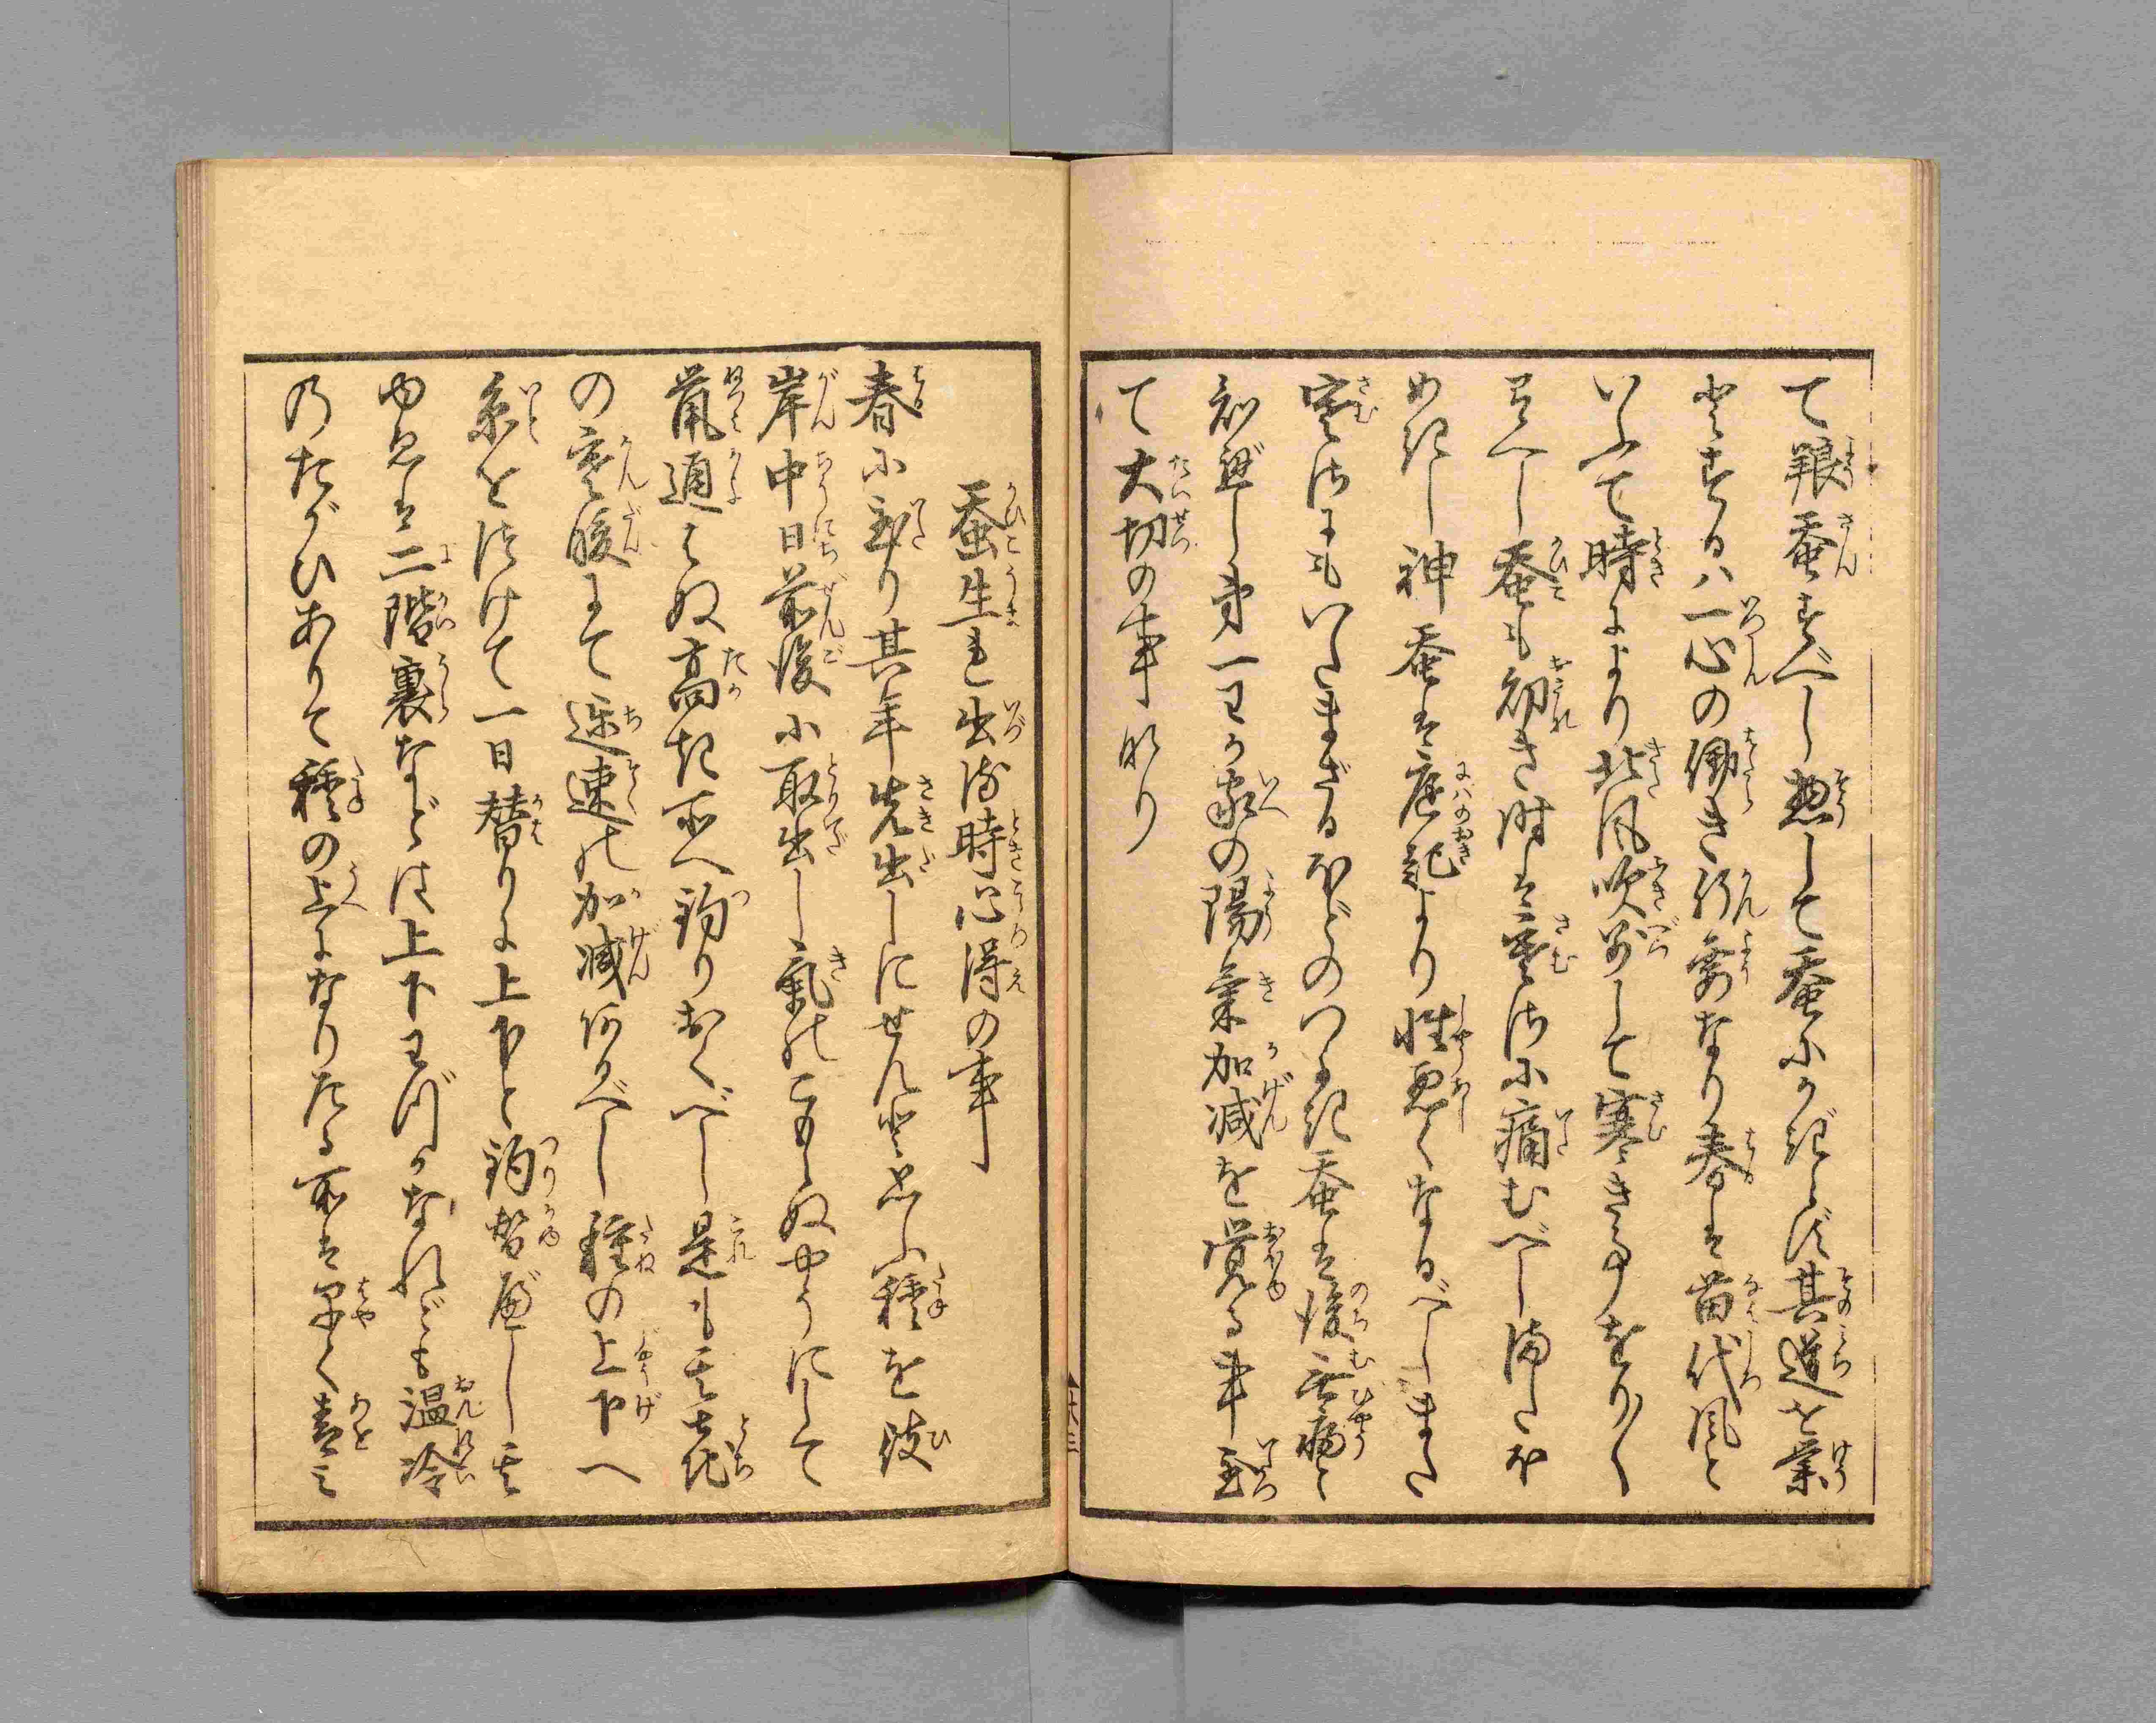 て養蚕すべし惣して蚕にかぎらず其道を業
とする八一心の働き肝要なり春は苗代風と
いふて時により北風吹つゞして寒き事をりく
あるべし蚕も幼き時は寒さに痛むべしまたか
めきし神蚕は庭起より性悪くなるべしまた
寒さにもいたまざるほどのつよき蚕は後無病と
知べし第一其家の陽気加減を覚る事至
て大切の事なり
蚕生れ出る時心得の事
春に至り其年先出しにせんと思ふ種を彼
岸中日前後に取出し気のこもらぬやうにして
鼠通はぬ高き所へ釣りおくべし是も其土地
の寒暖にて遅速の加減有べし種の上下へ
糸を附けて一日替りに上下と釣替べし其
ゆゑは二階裏などは上下わづかなれども温冷
のたがひありて種の上になりたる所は早く青み